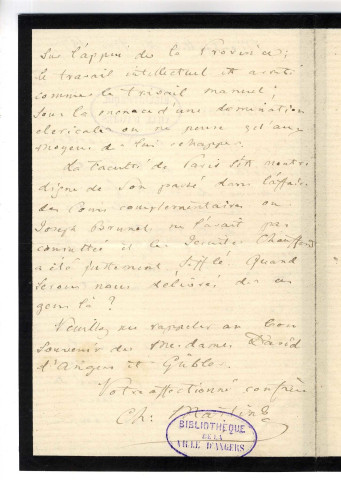 sur l'appui de la Province ;
le travail intellectuel est arrêté
comme le travail manuel ;
sous la menace d'une domination
cléricale on ne pense qu'aux
moyens de lui échapper.
La Faculté de Paris s'est montrée
digne de son passé dans l'affaire
des Cours complémentaires ou
Joseph Brunet ne l'avait pas
consultée et le Jésuite Chauffard
a été justement sifflé. Quand
serons nous délivrés de ces
gens là ?
Veuillez me rappeler au bon
souvenir de Mesdames David
d'Angers et Gubler.
Votre affectionné confrère
Ch: Martins
BIBLIOTHÈQUE
DE LA
VILLE D'ANGERS